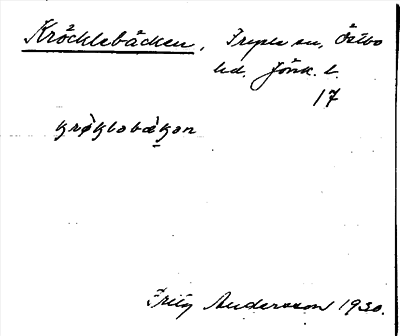 Kröcklebäcken, Fryele sn, Östbo
hd, Jönk. l.
17
krø̀klɘbæ̀kɘn
Fritz Andersson 1930.